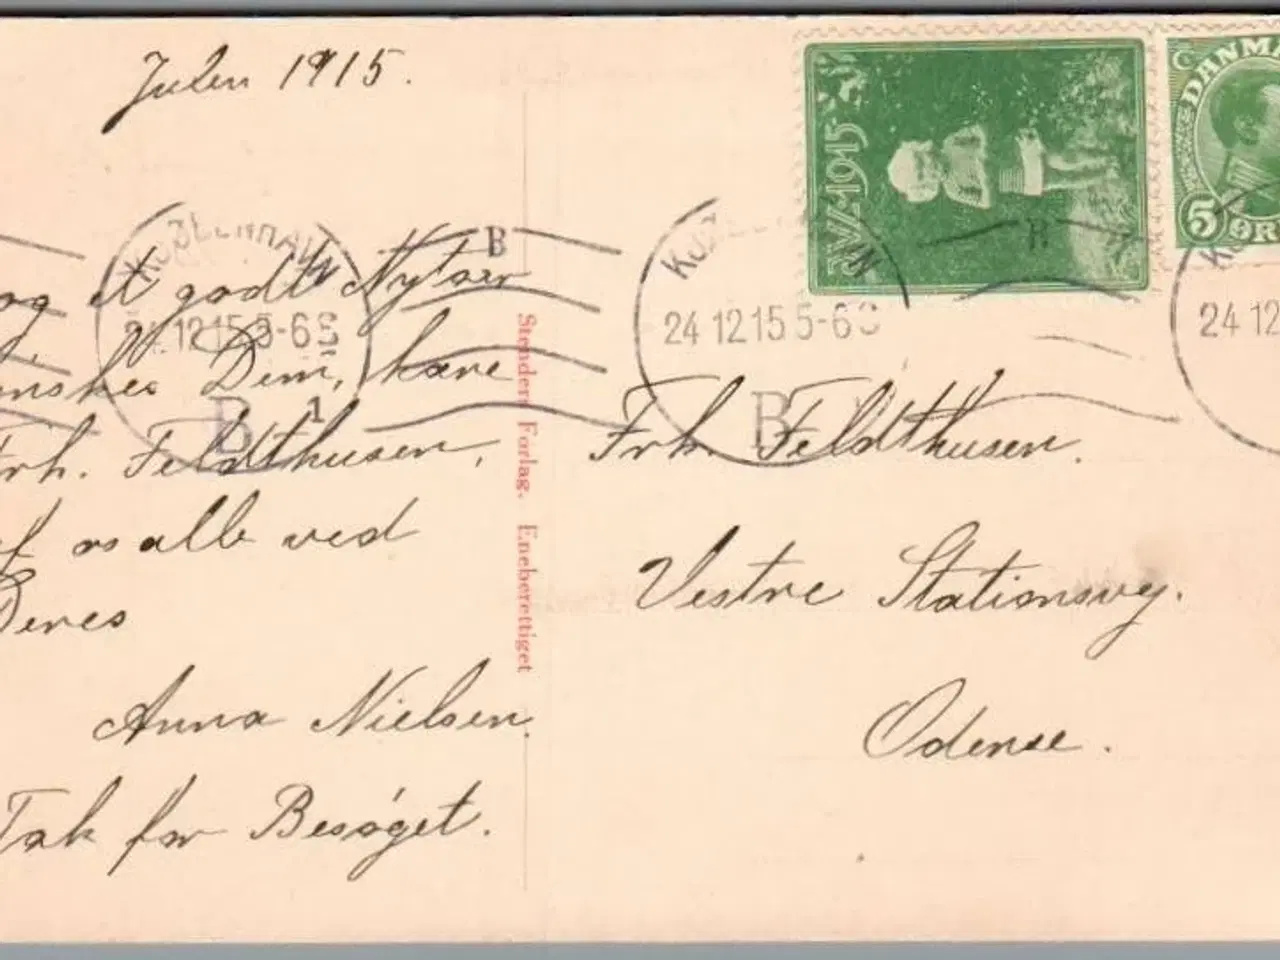 Julen 1915.
og et godt Nytaar
ønskes Dem, kære
Frk. Feldthusen,
af os alle ved
Deres
Anna Nielsen.
Tak for Besøget.
Stenders Forlag. Eneberettiget
JUL 1915
DANMA
5 ØR
KJØBENHAVN
24 12 15 5-6
B
1
B
KJØBENHAVN
24 12 15 5-6
B
B
24 12
Frk. Feldthusen.
Vestre Stationsvej.
Odense.